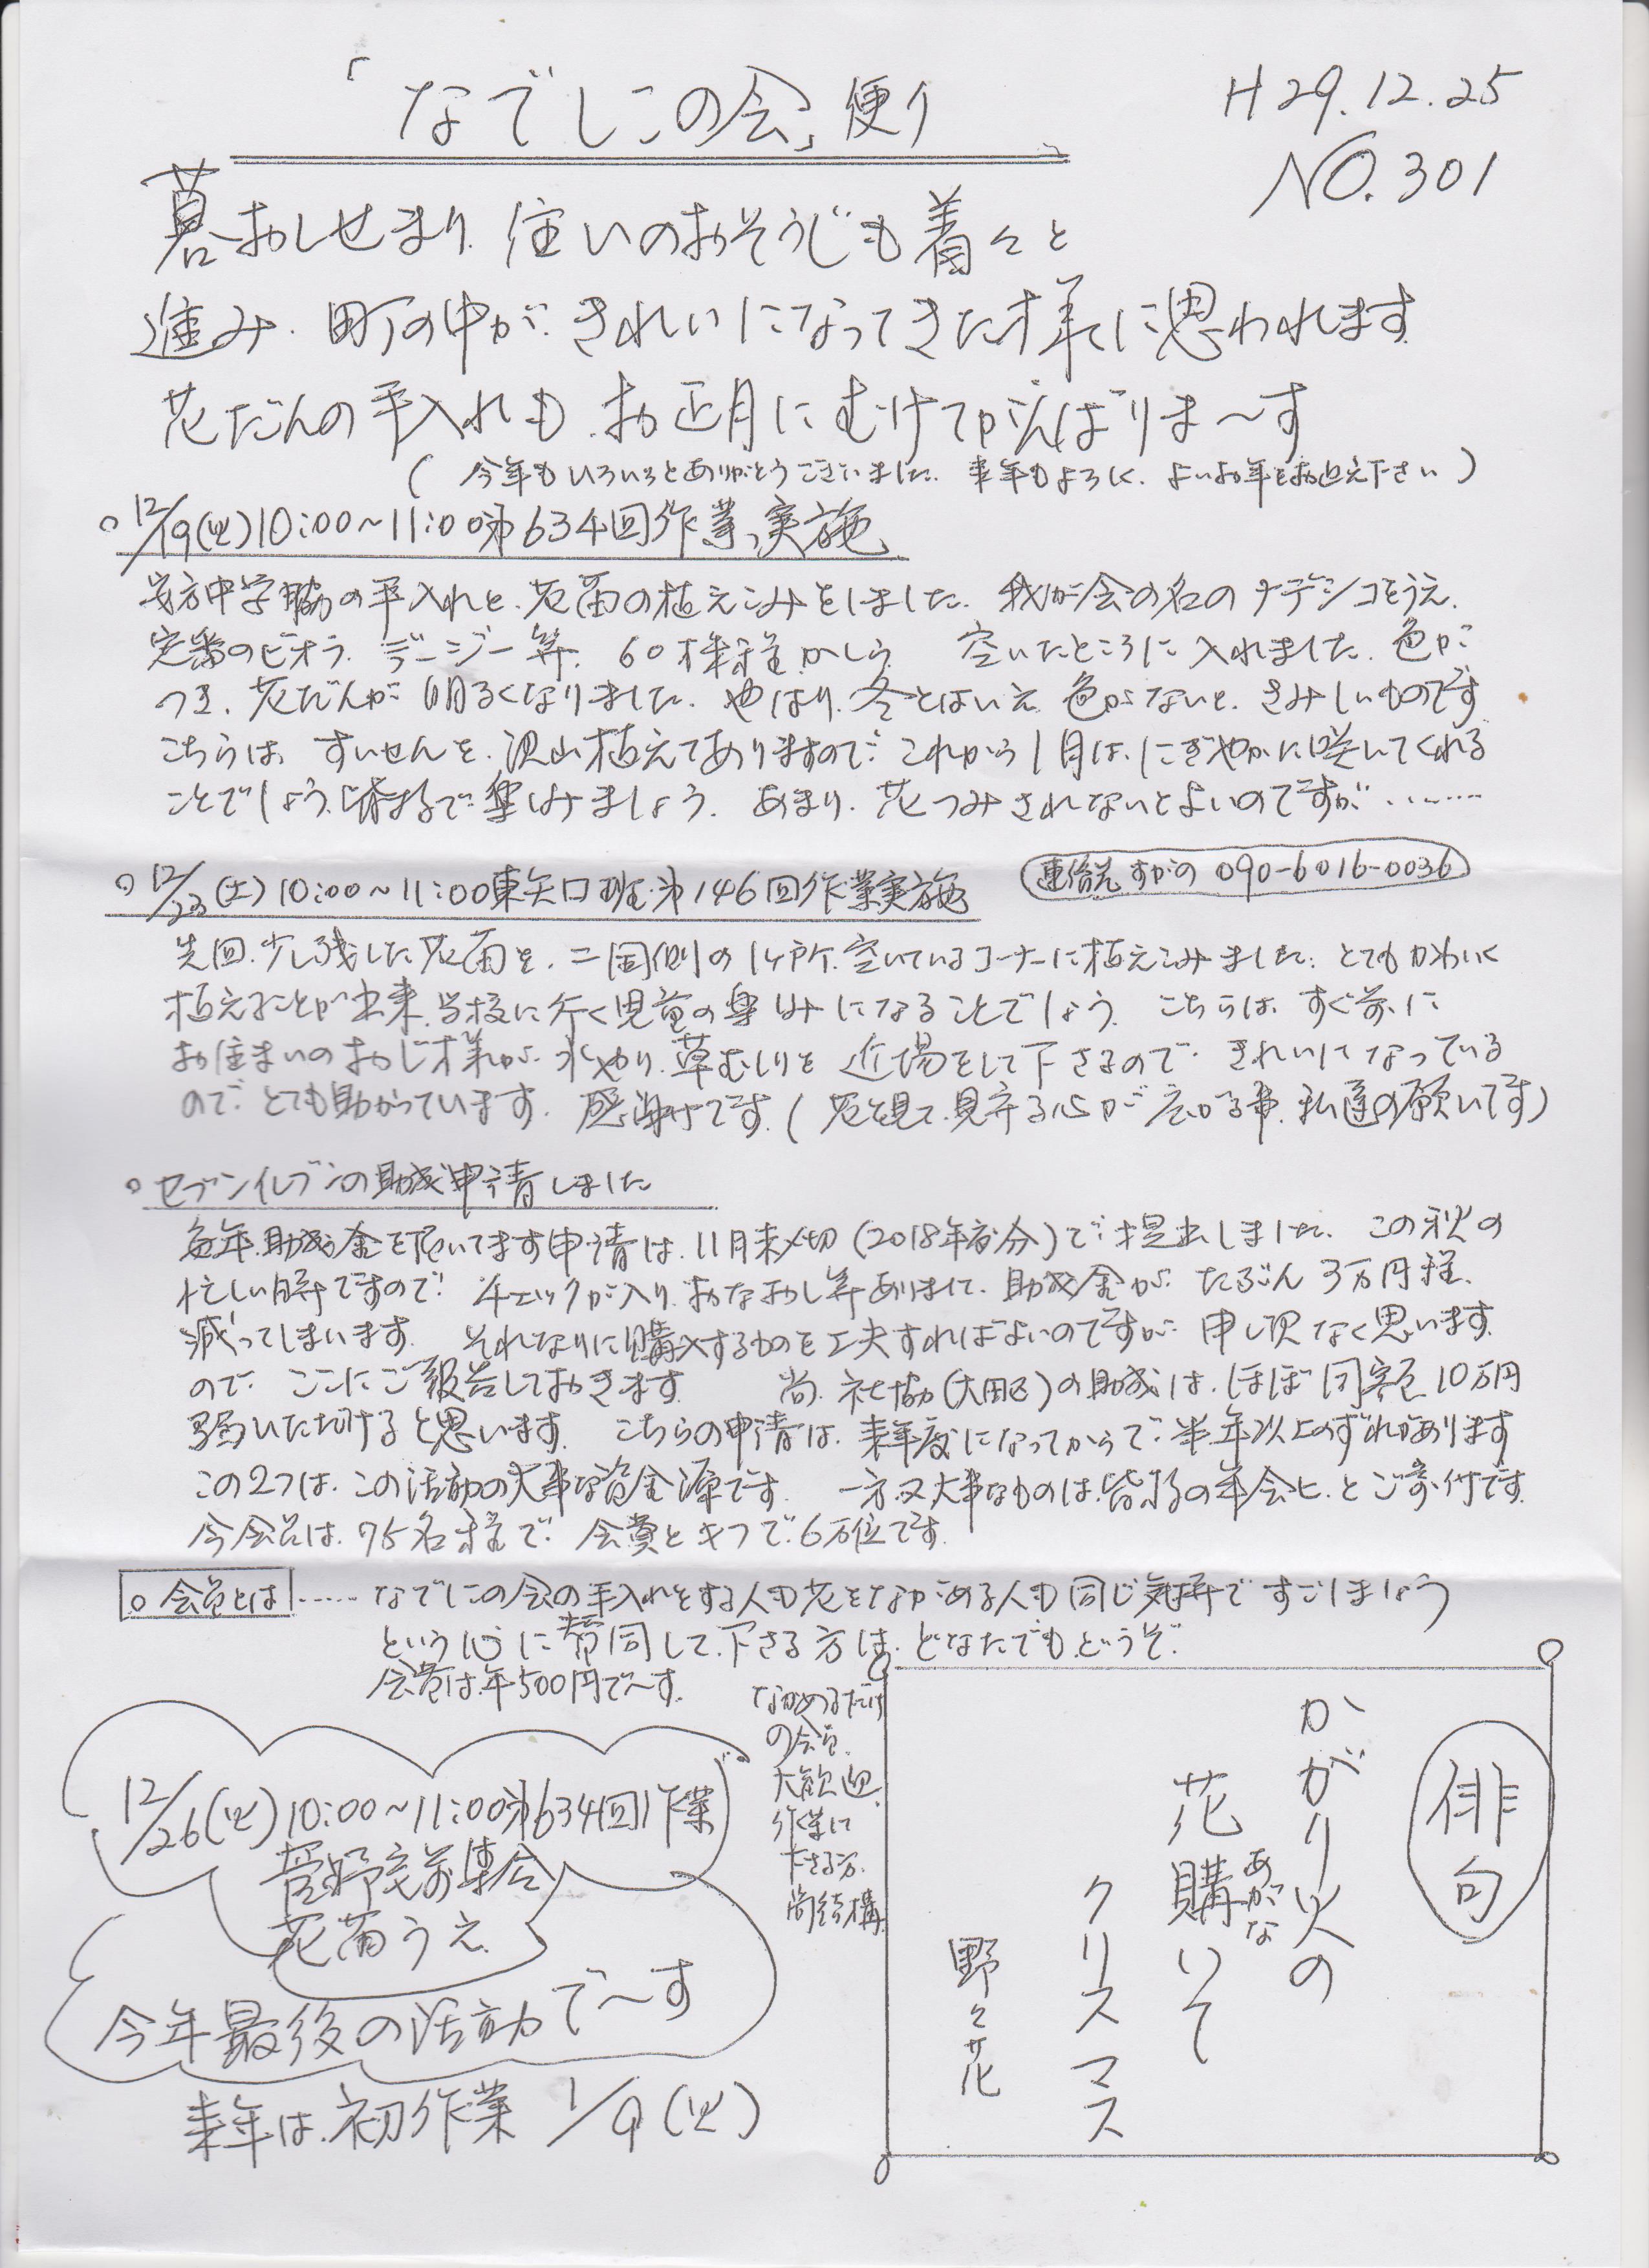 「なでしこの会」便り
H29.12.25
NO.301
暮おしせまり、住いのおそうじも着々と
進み、町の中が、きれいになってきた様に思われます
花だんの手入れも、お正月にむけてがんばりま〜す
(今年もいろいろとありがとうございました。来年もよろしく、よいお年をお迎え下さい)
○12/19(火)10:00〜11:00第634回作業実施
安方中学脇の手入れと、花苗の植えこみをしました。我が会の名のナデシコをうえ、
定番のビオラ、デージー等、60株程かしら 空いたところに入れました。色が
つき、花だんが明るくなりました。やはり、冬とはいえ色がないと、さみしいものです
こちらは、すいせんを、沢山植えてありますので、これから1月は、にぎやかに咲いてくれる
ことでしょう。春まで楽しみましょう。あまり、花つみされないとよいのですが………
○12/23(土)10:00〜11:00東矢口班第146回作業実施
連絡先 すがの 090-6016-0036
先回、少し残した花苗を、二国側の1ヶ所、空いているコーナーに植えこみました。とてもかわいく
植えることが出来、学校に行く児童の楽しみになることでしょう。こちらは、すぐ前に
お住まいのおじ様が、水やり、草むしりを近場をして下さるので、きれいになっている
ので、とても助かっています。感謝です。(花を見て、見守る心が広がる事、私達の願いです)
○セブンイレブンの助成申請しました
毎年、助成金を頂いてます申請は、11月末〆切(2018年春分)で提出しました。この秋の
忙しい時ですので、チェックが入り、おなおし等ありまして、助成金が、たぶん3万円程、
減ってしまいます。それなりに購入するものを工夫すればよいのですが、申し訳なく思います
ので、ここにご報告しておきます。尚、社協(大田区)の助成は、ほぼ同額10万円
弱いただけると思います。こちらの申請は、来年度になってからで、半年以上のずれがあります
この2つは、この活動の大事な資金源です。一方、又大事なものは、皆様の年会ヒ、とご寄付です。
今会員は、75名様で、会費とキフで、6万位です。
○会員とは……なでしこの会の手入れをする人も花をながめる人も同じ気持ですごしましょう
という心に賛同して下さる方は、どなたでもどうぞ
会費は年500円で〜す。
ながめるだけ
の会員、
大歓迎、
作業に
ださる方、
尚結構
12/26(火)10:00〜11:00第634回作業
菅野宅前集合
花苗うえ
今年最後の活動で〜す
来年は、初作業 1/9(火)
俳句
かがり火の
花購いて
あがな
クリスマス
野々花